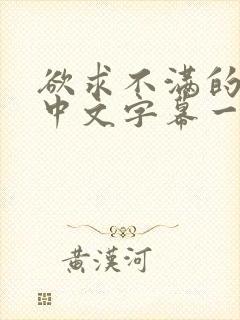 欲求不满的
中文字幕一
黄漢河